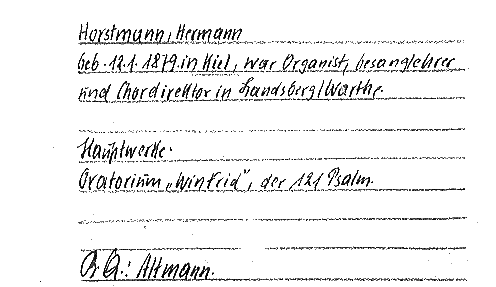 Horstmann, Hermann
geb. 12.1.1879 in Kiel, war Organist, Gesanglehrer
und Chordirektor in Landsberg/Warthe.
Hauptwerke:
Oratorium "Winfrid", der 121 Psalm.
Altmann.